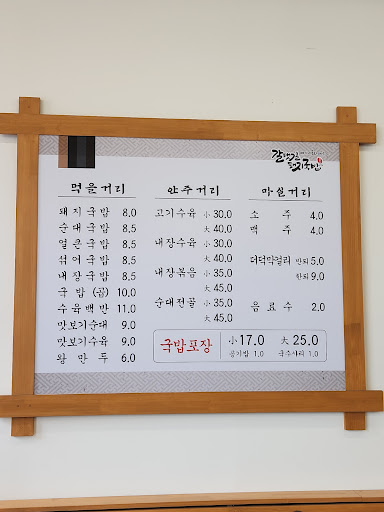 갈맷길
돼지국밥
먹을거리
돼지국밥 8.0
순대국밥 8.5
얼큰국밥 8.5
섞어국밥 8.5
내장국밥 8.5
국밥(곱) 10.0
수육백반 11.0
맛보기순대 9.0
맛보기수육 9.0
왕만두 6.0
안주거리
고기수육 小 30.0
大 40.0
내장수육 小 30.0
大 40.0
내장볶음 小 35.0
大 45.0
순대전골 小 35.0
大 45.0
마실거리
소주 4.0
맥주 4.0
더덕막걸리 반되 5.0
한되 9.0
음료수 2.0
국밥포장 小 17.0 大 25.0
공기밥 1.0 국수사리 1.0